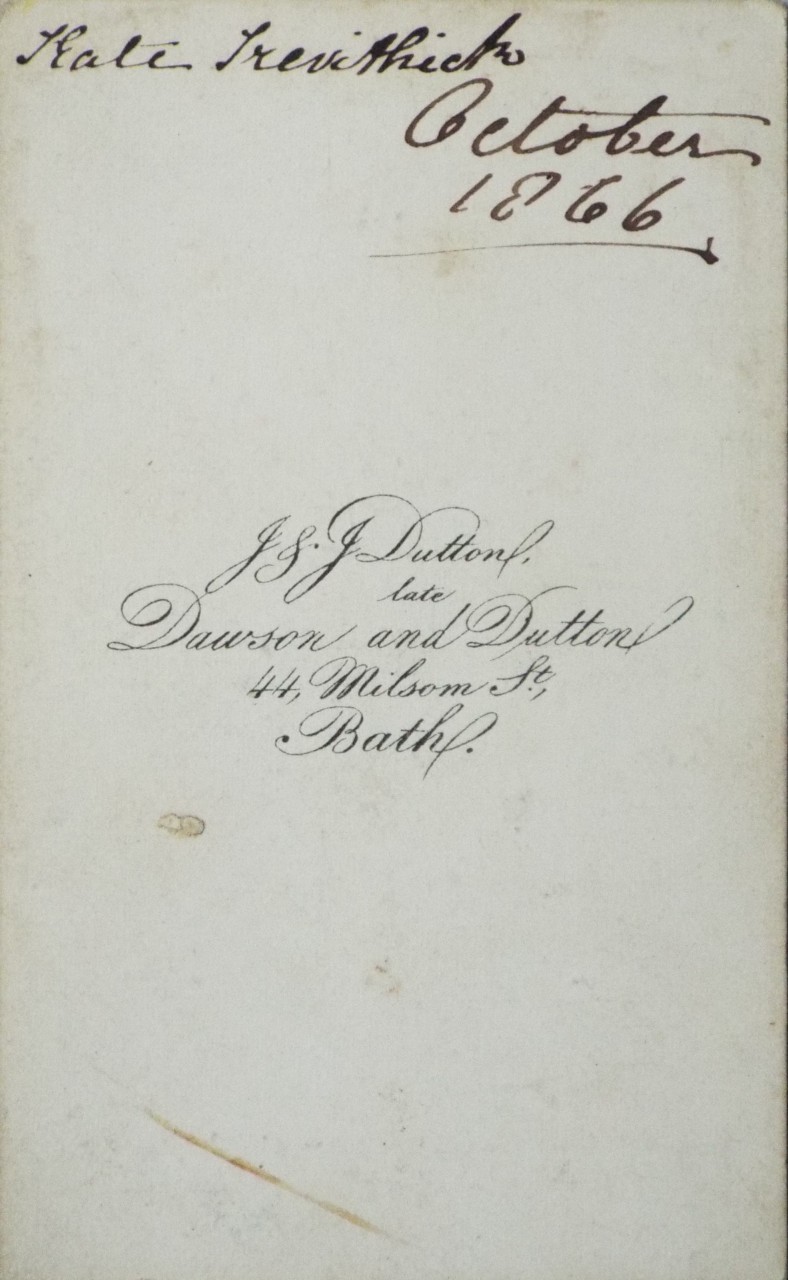 Kate Trevithick
October
1866
J & J Dutton,
late
Dawson and Dutton
44, Milsom St.,
Bath.